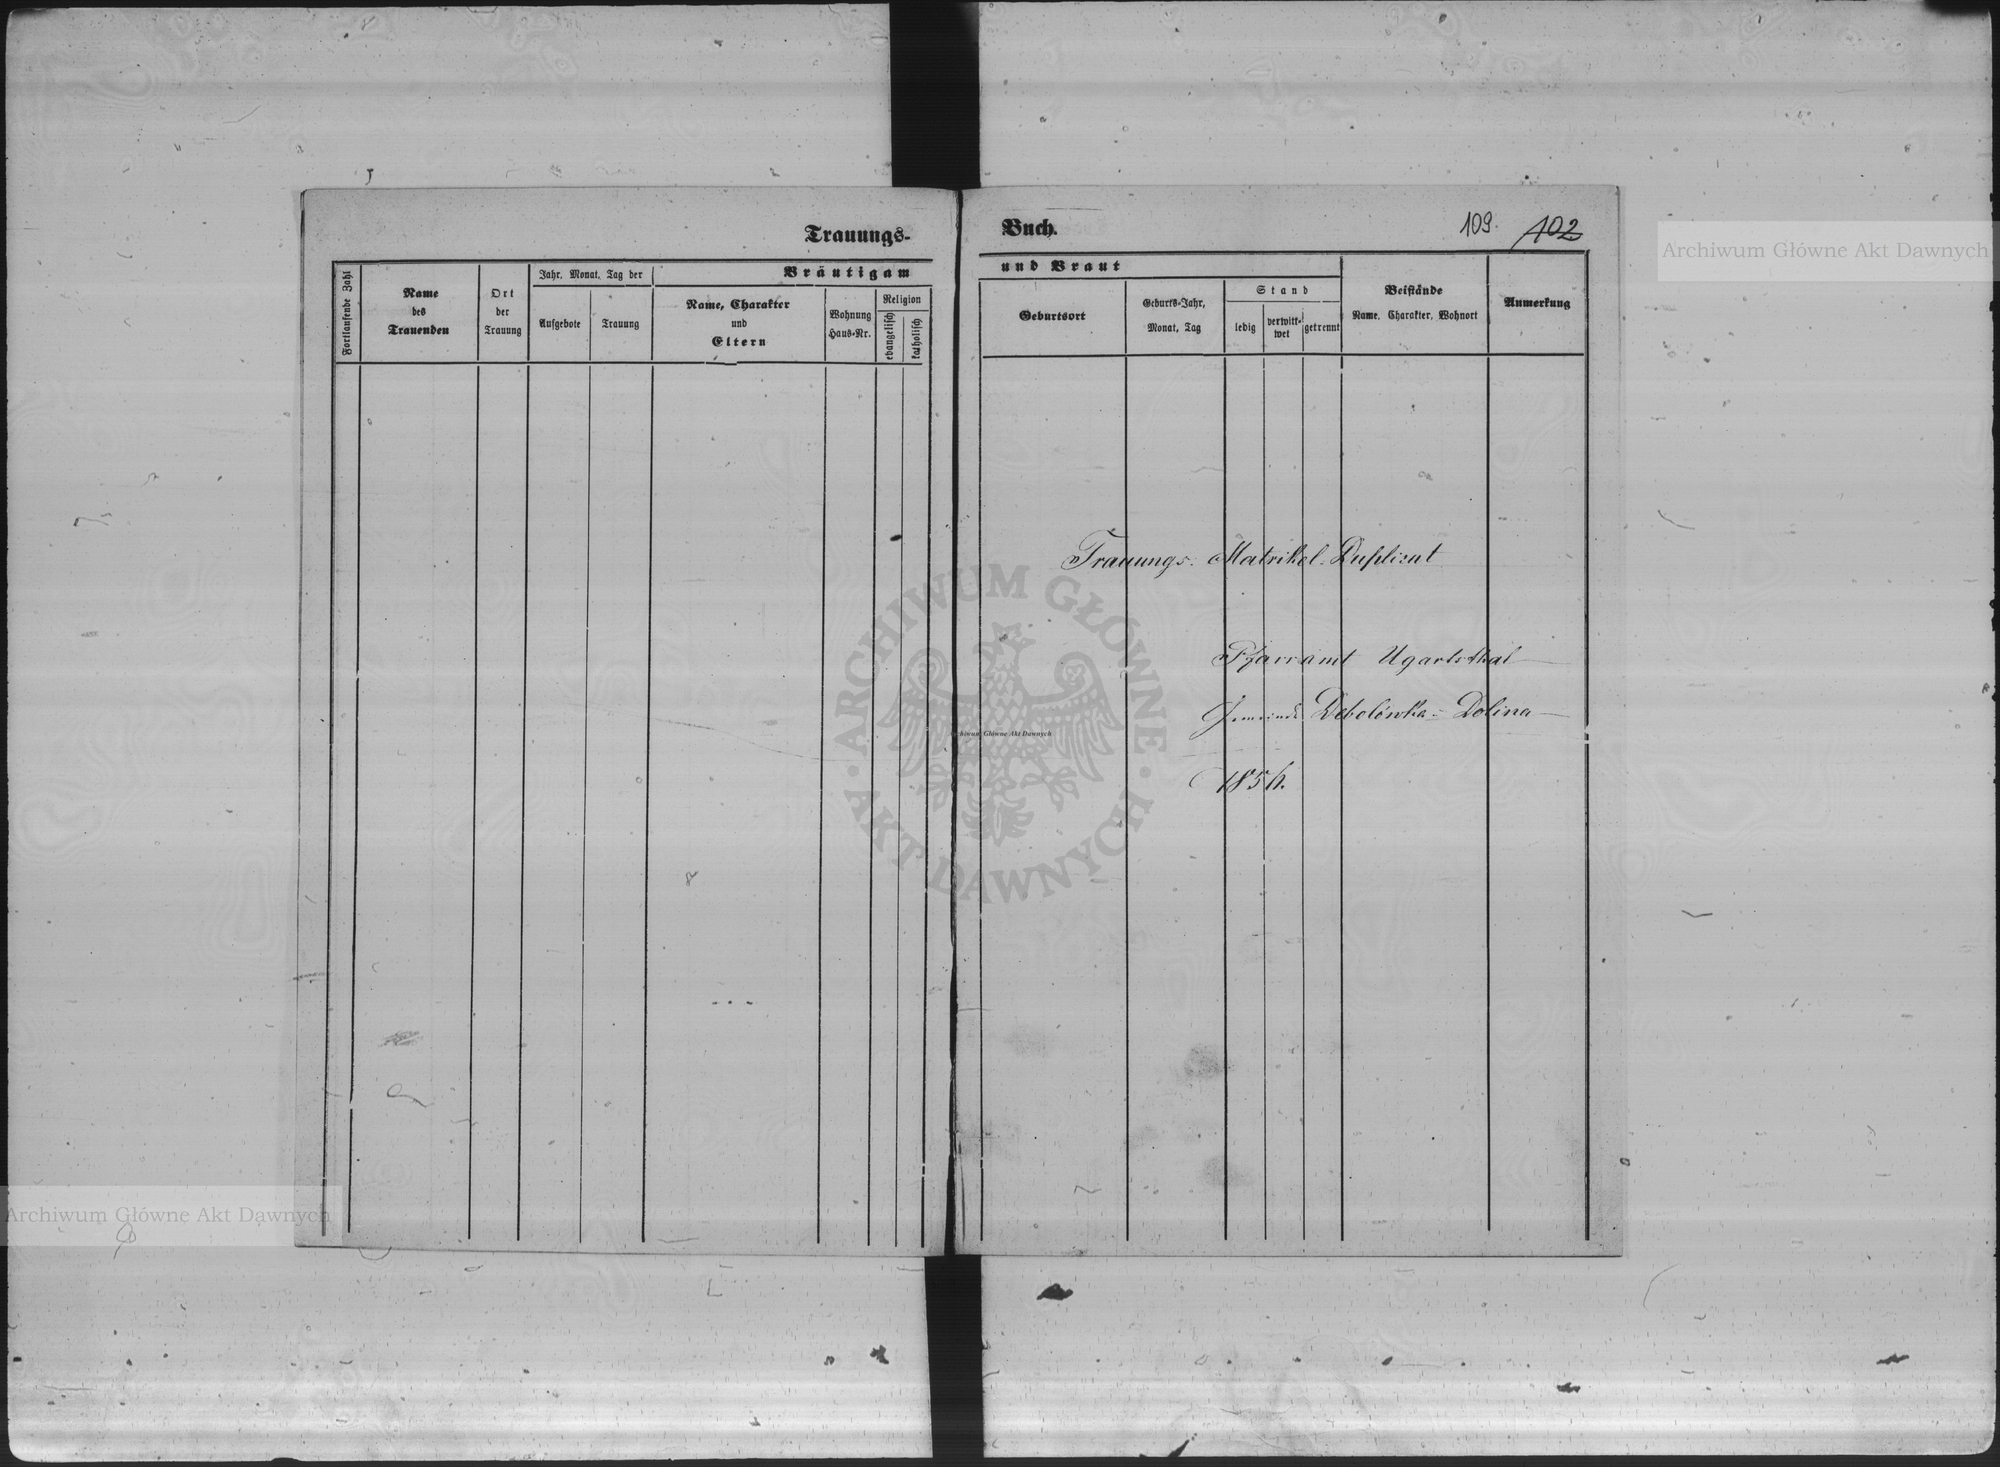 Trauungs-
Fortlaufende Zahl
Name
des
Trauenden
Ort
der
Trauung
Jahr, Monat, Tag der
Aufgebote
Trauung
Bräutigam
Name, Charakter
und
Eltern
Wohnung
Haus-Nr.
Religion
evangelisch
katholisch
Buch.
109. 102
und Braut
Geburtsort
Geburts-Jahr,
Monat, Tag
Stand
ledig
verwitt-
wet
getrennt
Beistände
Name, Charakter, Wohnort
Anmerkung
Trauungs-Matrikel-Duplicat
Pfarramt Ugartsthal
Gemeinde Debolówka-Dolina
Archiwum Główne Akt Dawnych
Archiwum Główne Akt Dawnych
Archiwum Główne Akt Dawnych
ARCHIWUM GŁÓWNE
AKT DAWNYCH